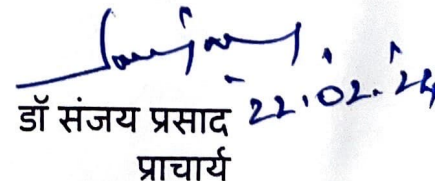 डॉ संजय प्रसाद 22.02.24
प्राचार्य